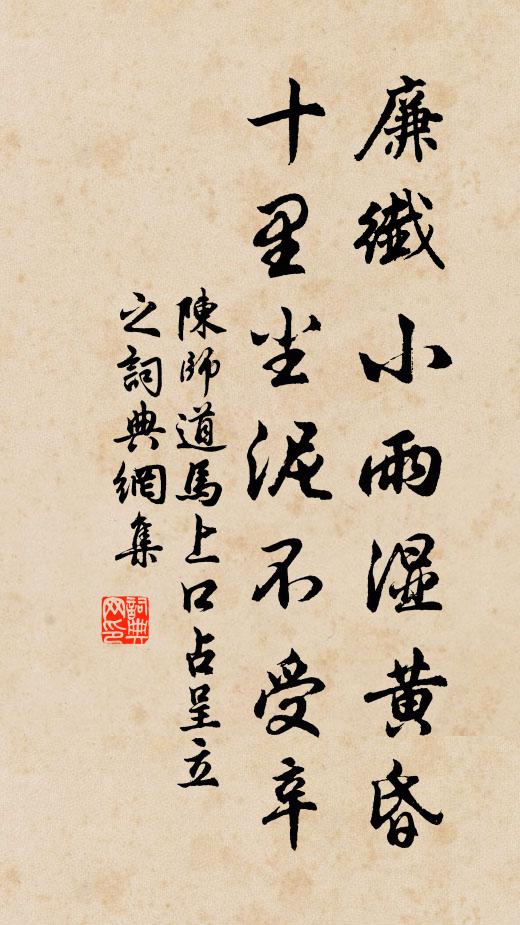 廉纖小雨濕黄昏
十里尘泥不受辛
陳師道馬上口占呈立
之詞典網集
詞典网印